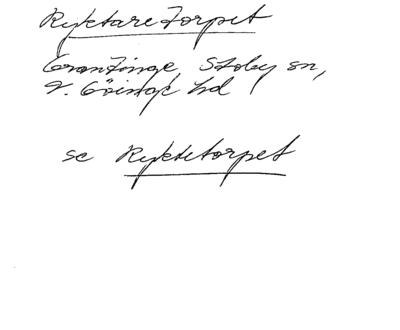 Ryktaretorpet
Grantinge, Stoby sn,
V. Göinge hd
se Ryktetorpet